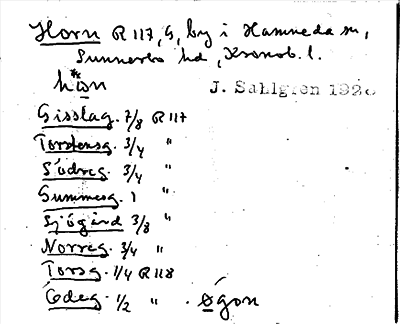 Horn R 117, G, by i Hamneda sn,
Sunnerbo hd, Kronob. l.
hön J. Sahlgren 1928
Gisslag. 7/8 R 117
Torstensg. 3/4 "
Södreg. 3/4 "
Gummesg. 1 "
Sjögård 3/8 "
Norreg. 3/4 "
Torsg. 1/4 R 118
Ödeg. 1/2 " . øgon